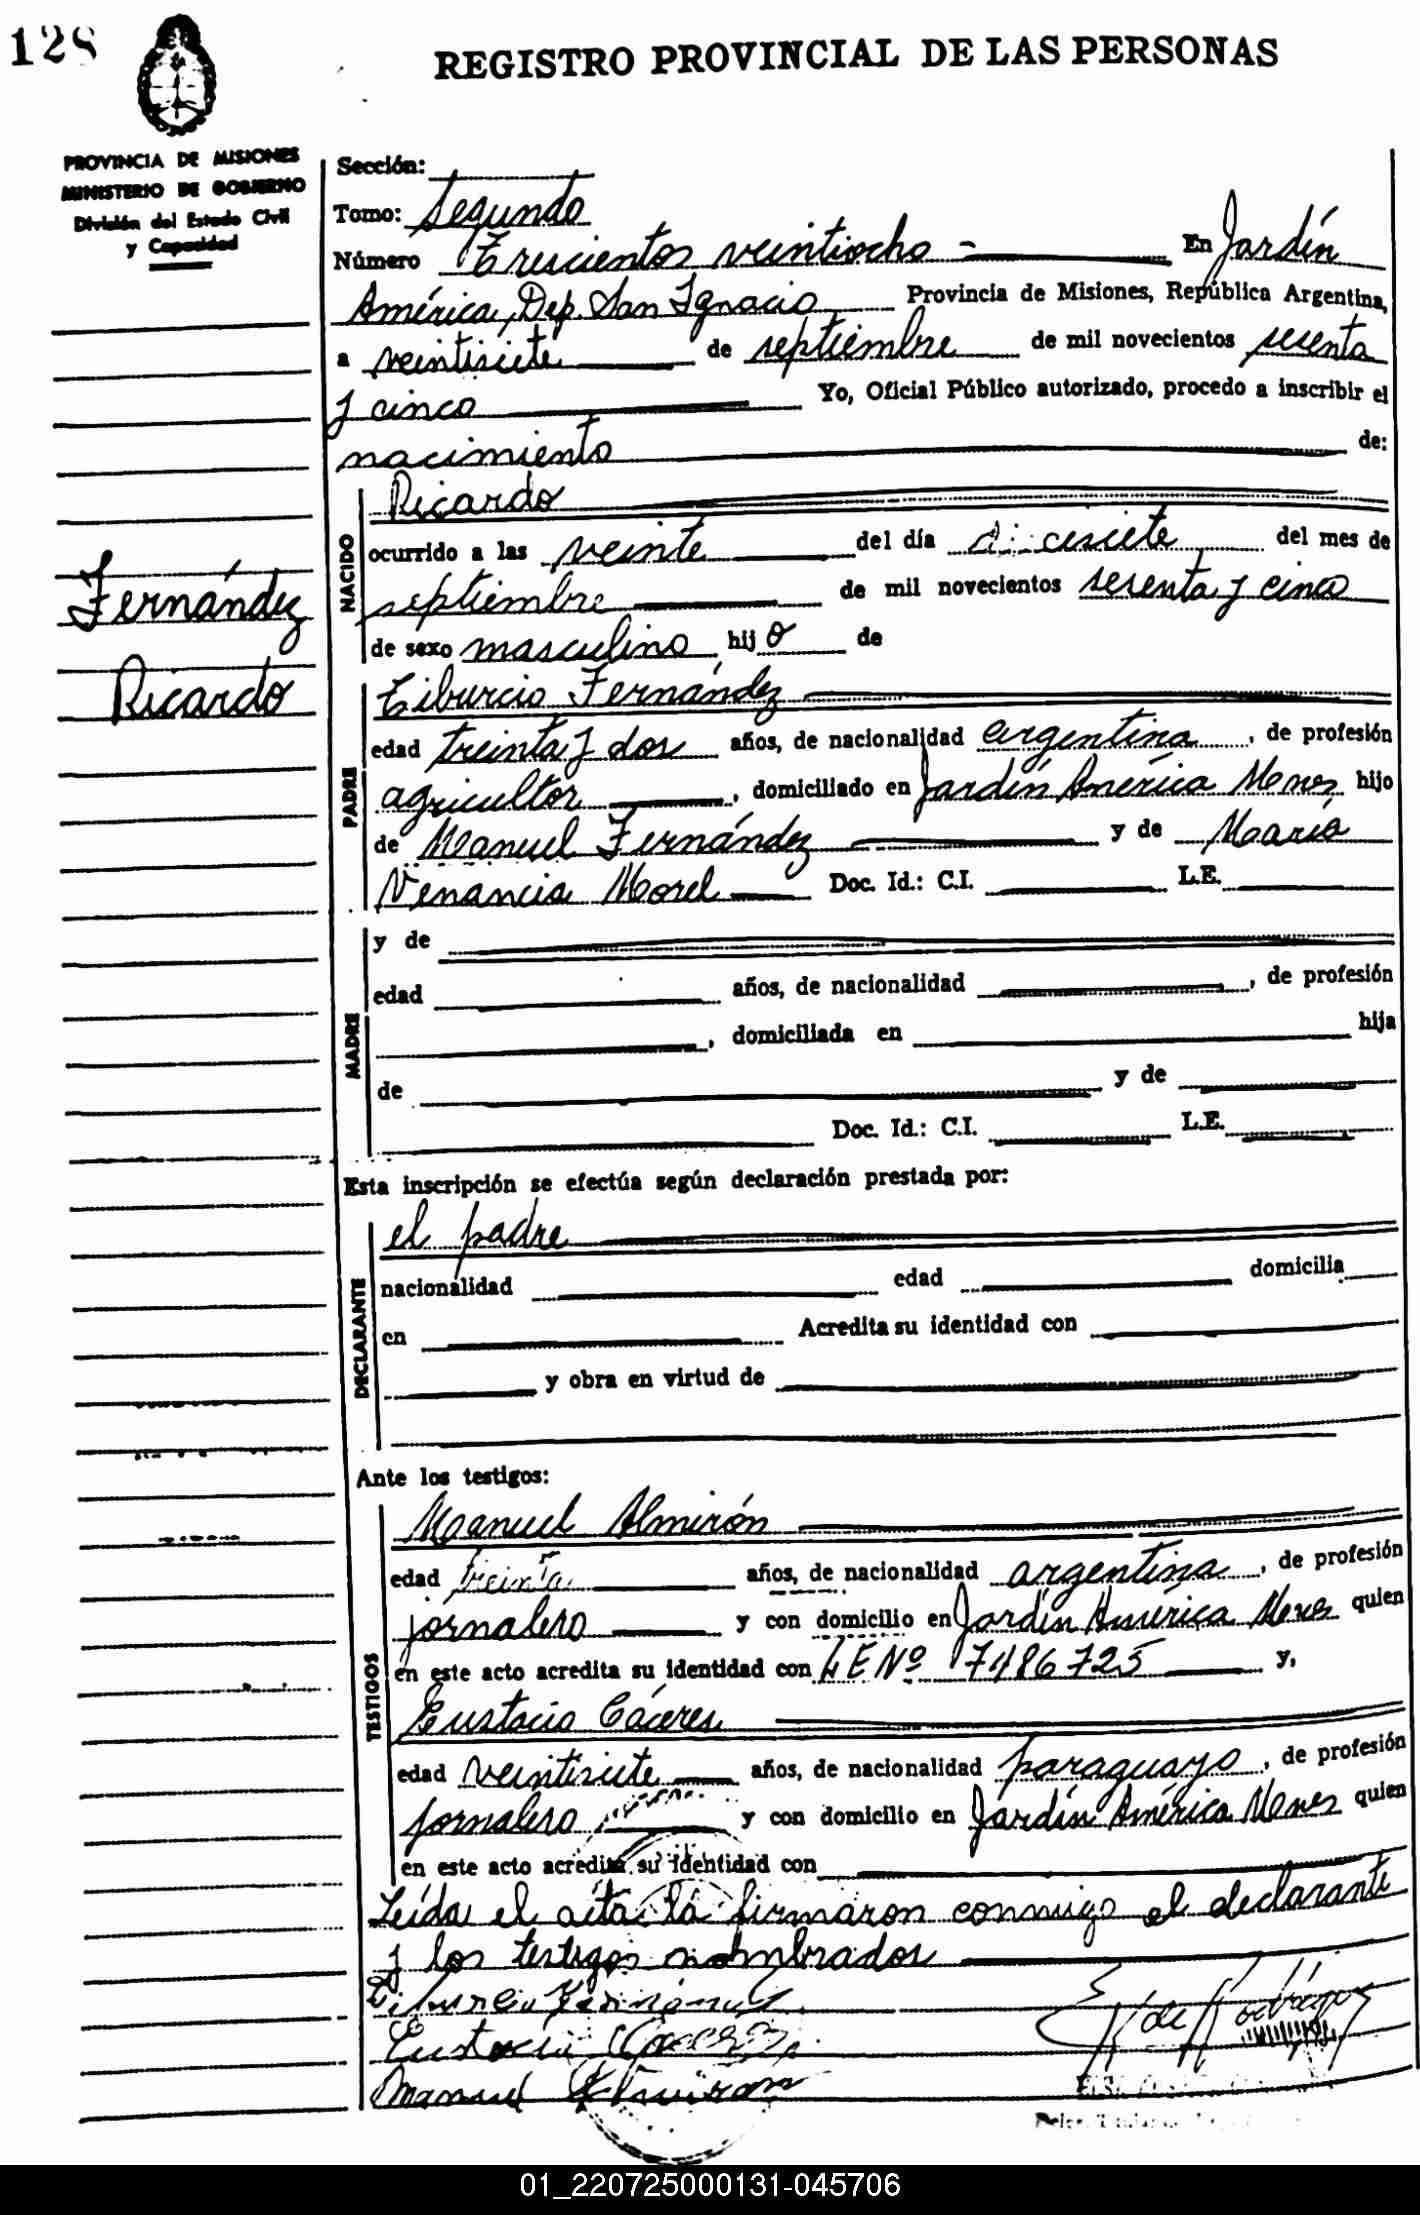 128
REGISTRO PROVINCIAL DE LAS PERSONAS
PROVINCIA DE MISIONES
MINISTERIO DE GOBIERNO
División del Estado Civil
y Capacidad
Sección:
Tomo: Segundo
Número Trescientos veintiocho - En Jardín
América, Dep. San Ignacio Provincia de Misiones, República Argentina,
a veintisiete de septiembre de mil novecientos sesenta
y cinco Yo, Oficial Público autorizado, procedo a inscribir el
nacimiento de:
NACIDO
Ricardo
ocurrido a las veinte del día diecisiete del mes de
septiembre de mil novecientos sesenta y cinco
de sexo masculino hijo de
Fernández
Ricardo
PADRE
Tiburcio Fernández
edad treinta y dos años, de nacionalidad argentina, de profesión
agricultor, domiciliado en Jardín América Mones hijo
de Manuel Fernández y de María
Venancia Morel Doc. Id.: C.I. L.E.
MADRE
y de
edad años, de nacionalidad , de profesión
, domiciliada en hija
de y de
Doc. Id.: C.I. L.E.
Esta inscripción se efectúa según declaración prestada por:
DECLARANTE
el padre
nacionalidad edad domicilia
en Acredita su identidad con
y obra en virtud de
Ante los testigos:
TESTIGOS
Manuel Almirón
edad treinta años, de nacionalidad argentina, de profesión
jornalero y con domicilio en Jardín América Mones quien
en este acto acredita su identidad con LE Nº 7486725 y,
Eustacio Cáceres
edad veintisiete años, de nacionalidad paraguayo, de profesión
jornalero y con domicilio en Jardín América Mones quien
en este acto acredita su identidad con
Leída el acta la firmaron conmigo el declarante
y los testigos nombrados
Tiburcio Fernández
Eustacio Caceres
Manuel Almiron
01_220725000131-045706